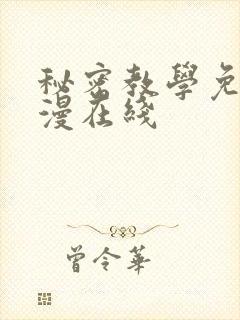 秘密教學免
漫在綫
曾令華